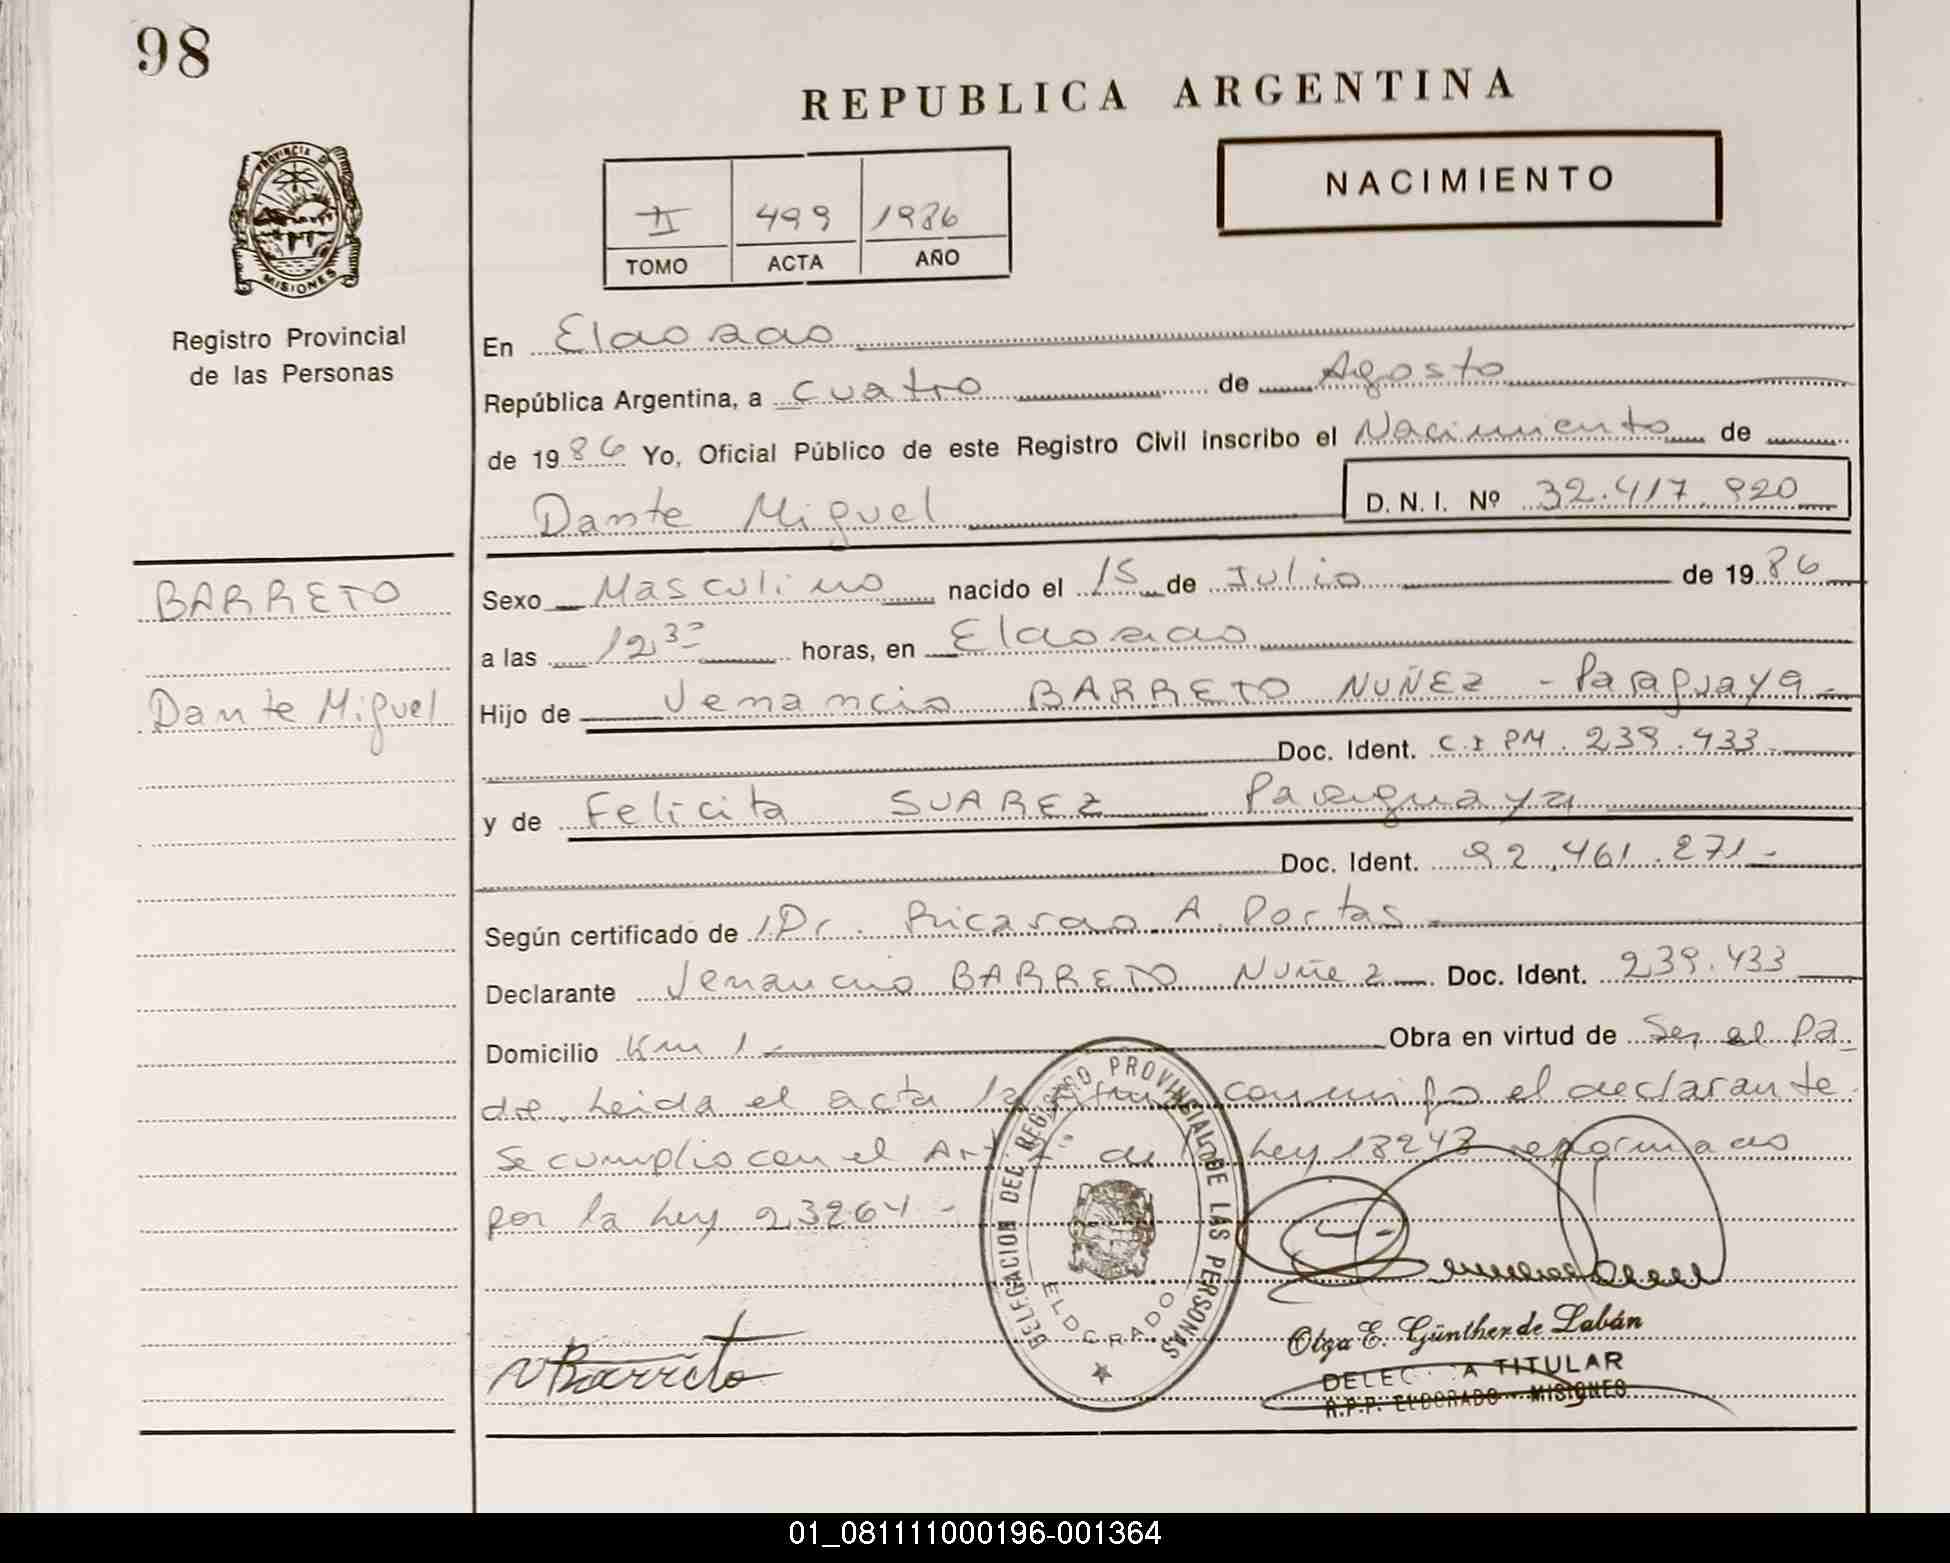 98
REPUBLICA ARGENTINA
NACIMIENTO
PROVINCIA DE MISIONES
II 499 1986
TOMO ACTA AÑO
Registro Provincial
de las Personas
En Eldorado
República Argentina, a cuatro de Agosto
de 1986 Yo, Oficial Público de este Registro Civil inscribo el Nacimiento de
Dante Miguel D. N. I. Nº 32.417.920
BARRETO
Dante Miguel
Sexo Masculino nacido el 15 de Julio de 1986
a las 12,30 horas, en Eldorado
Hijo de Venancio BARRETO NUÑEZ - Paraguaya -
Doc. Ident. C.I PM. 239.433
y de Felicita SUAREZ Paraguaya
Doc. Ident. 92.461.271-
Según certificado de Dr. Ricardo A. Portas
Declarante Venancio BARRETO Nuñez Doc. Ident. 239.433
Domicilio Km 1 - Obra en virtud de Ser el Pa-
dre. Leida el acta la firma conmigo el declarante.
Se cumplio con el Art de la Ley 18248 reformado
por la Ley 23264 -
DELEGACION DEL REGISTRO PROVINCIAL DE LAS PERSONAS
ELDORADO
V Barreto
Olga E. Günther de Labán
DELEC A TITULAR
R.P.P. ELDORADO - MISIONES
01_081111000196-001364